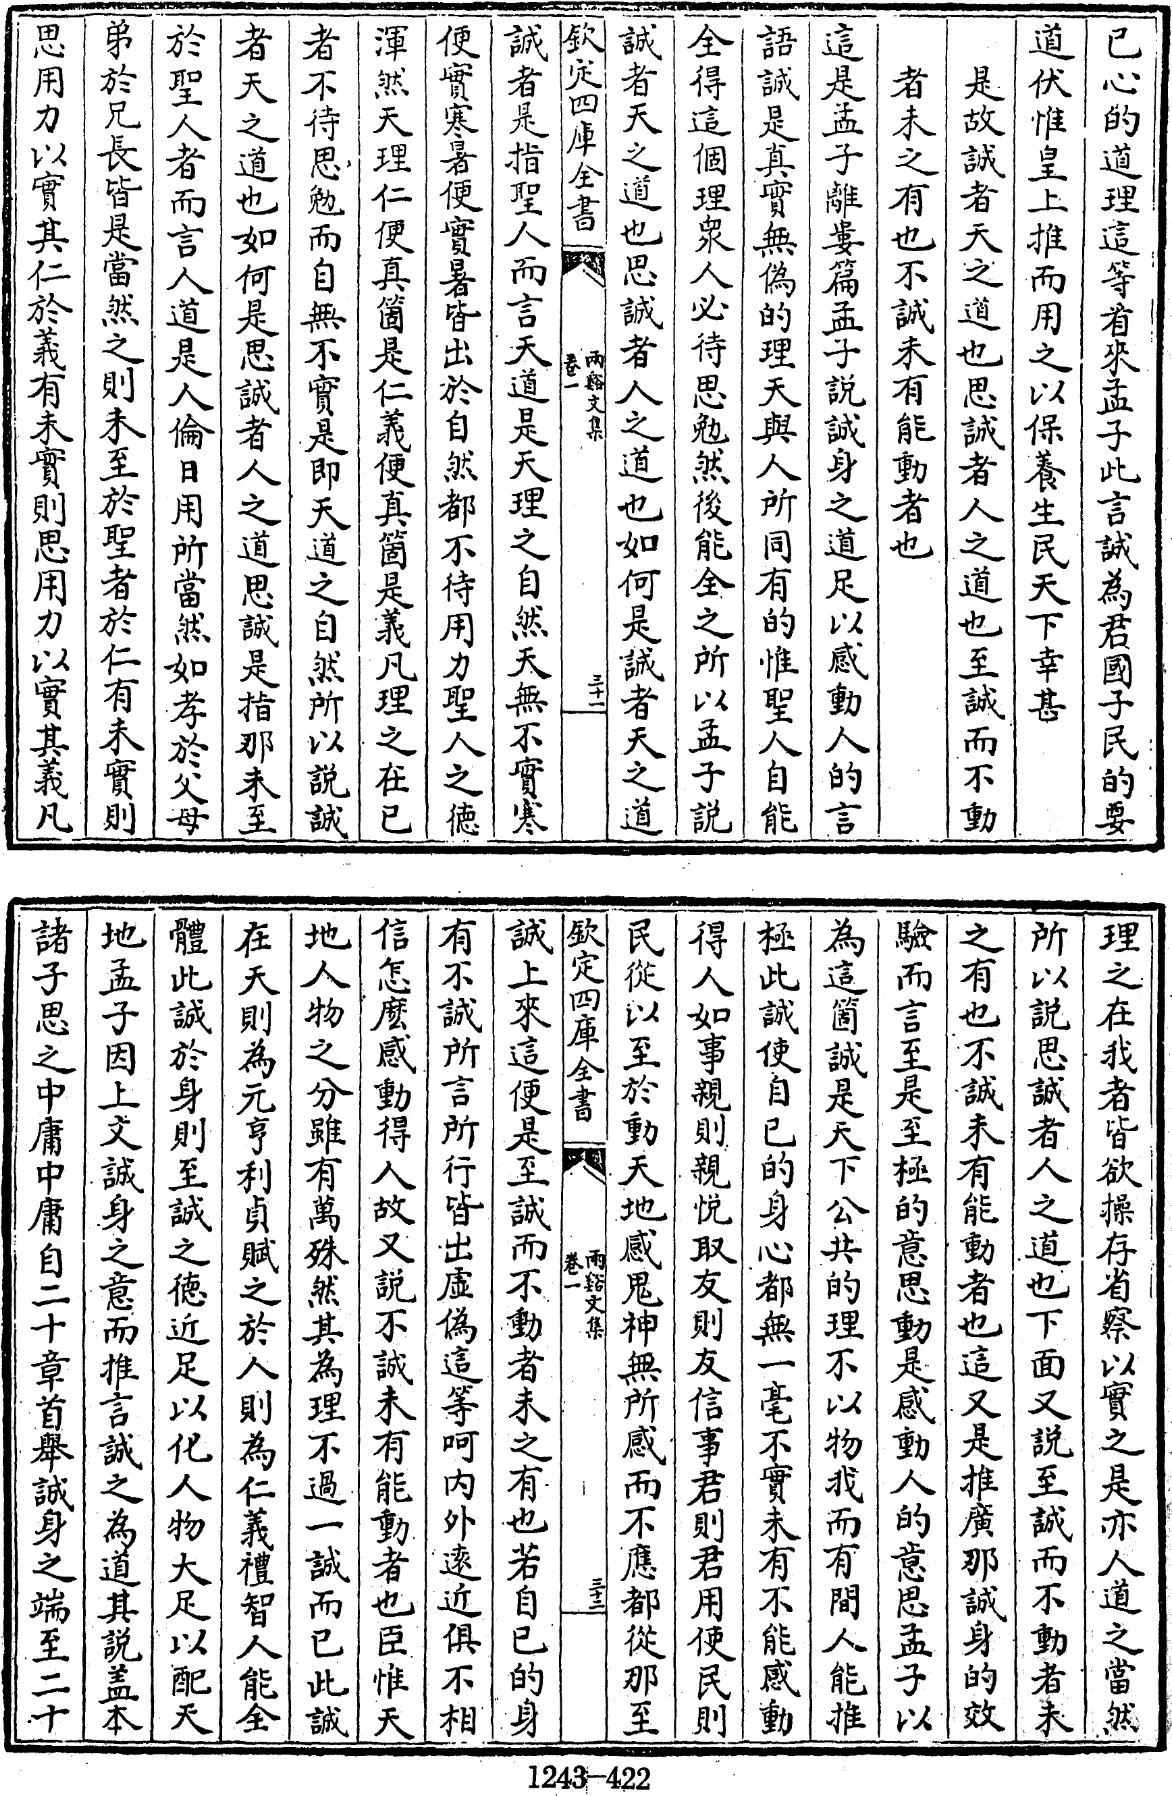 己心的道理這等看來孟子此言誠為君國子民的要
道伏惟皇上推而用之以保養生民天下幸甚
是故誠者天之道也思誠者人之道也至誠而不動
者未之有也不誠未有能動者也
這是孟子離婁篇孟子説誠身之道足以感動人的言
語誠是真實無偽的理天與人所同有的惟聖人自能
全得這個理衆人必待思勉然後能全之所以孟子説
誠者天之道也思誠者人之道也如何是誠者天之道
欽定四庫全書
兩谿文集
卷一
三十一
誠者是指聖人而言天道是天理之自然天無不實寒
便實寒暑便實暑皆出於自然都不待用力聖人之德
渾然天理仁便真箇是仁義便真箇是義凡理之在已
者不待思勉而自無不實是即天道之自然所以説誠
者天之道也如何是思誠者人之道思誠是指那未至
於聖人者而言人道是人倫日用所當然如孝於父母
弟於兄長皆是當然之則未至於聖者於仁有未實則
思用力以實其仁於義有未實則思用力以實其義凡
理之在我者皆欲操存省察以實之是亦人道之當然
所以説思誠者人之道也下面又説至誠而不動者未
之有也不誠未有能動者也這又是推廣那誠身的效
驗而言至是至極的意思動是感動人的意思孟子以
為這箇誠是天下公共的理不以物我而有間人能推
極此誠使自已的身心都無一毫不實未有不能感動
得人如事親則親悦取友則友信事君則君用使民則
民從以至於動天地感鬼神無所感而不應都從那至
欽定四庫全書
兩谿文集
卷一
三十二
誠上來這便是至誠而不動者未之有也若自已的身
有不誠所言所行皆出虛偽這等呵内外遠近俱不相
信怎麽感動得人故又説不誠未有能動者也臣惟天
地人物之分雖有萬殊然其為理不過一誠而已此誠
在天則為元亨利貞賦之於人則為仁義禮智人能全
體此誠於身則至誠之德近足以化人物大足以配天
地孟子因上文誠身之意而推言誠之為道其説盖本
諸子思之中庸中庸自二十章首舉誠身之端至二十
1243-422